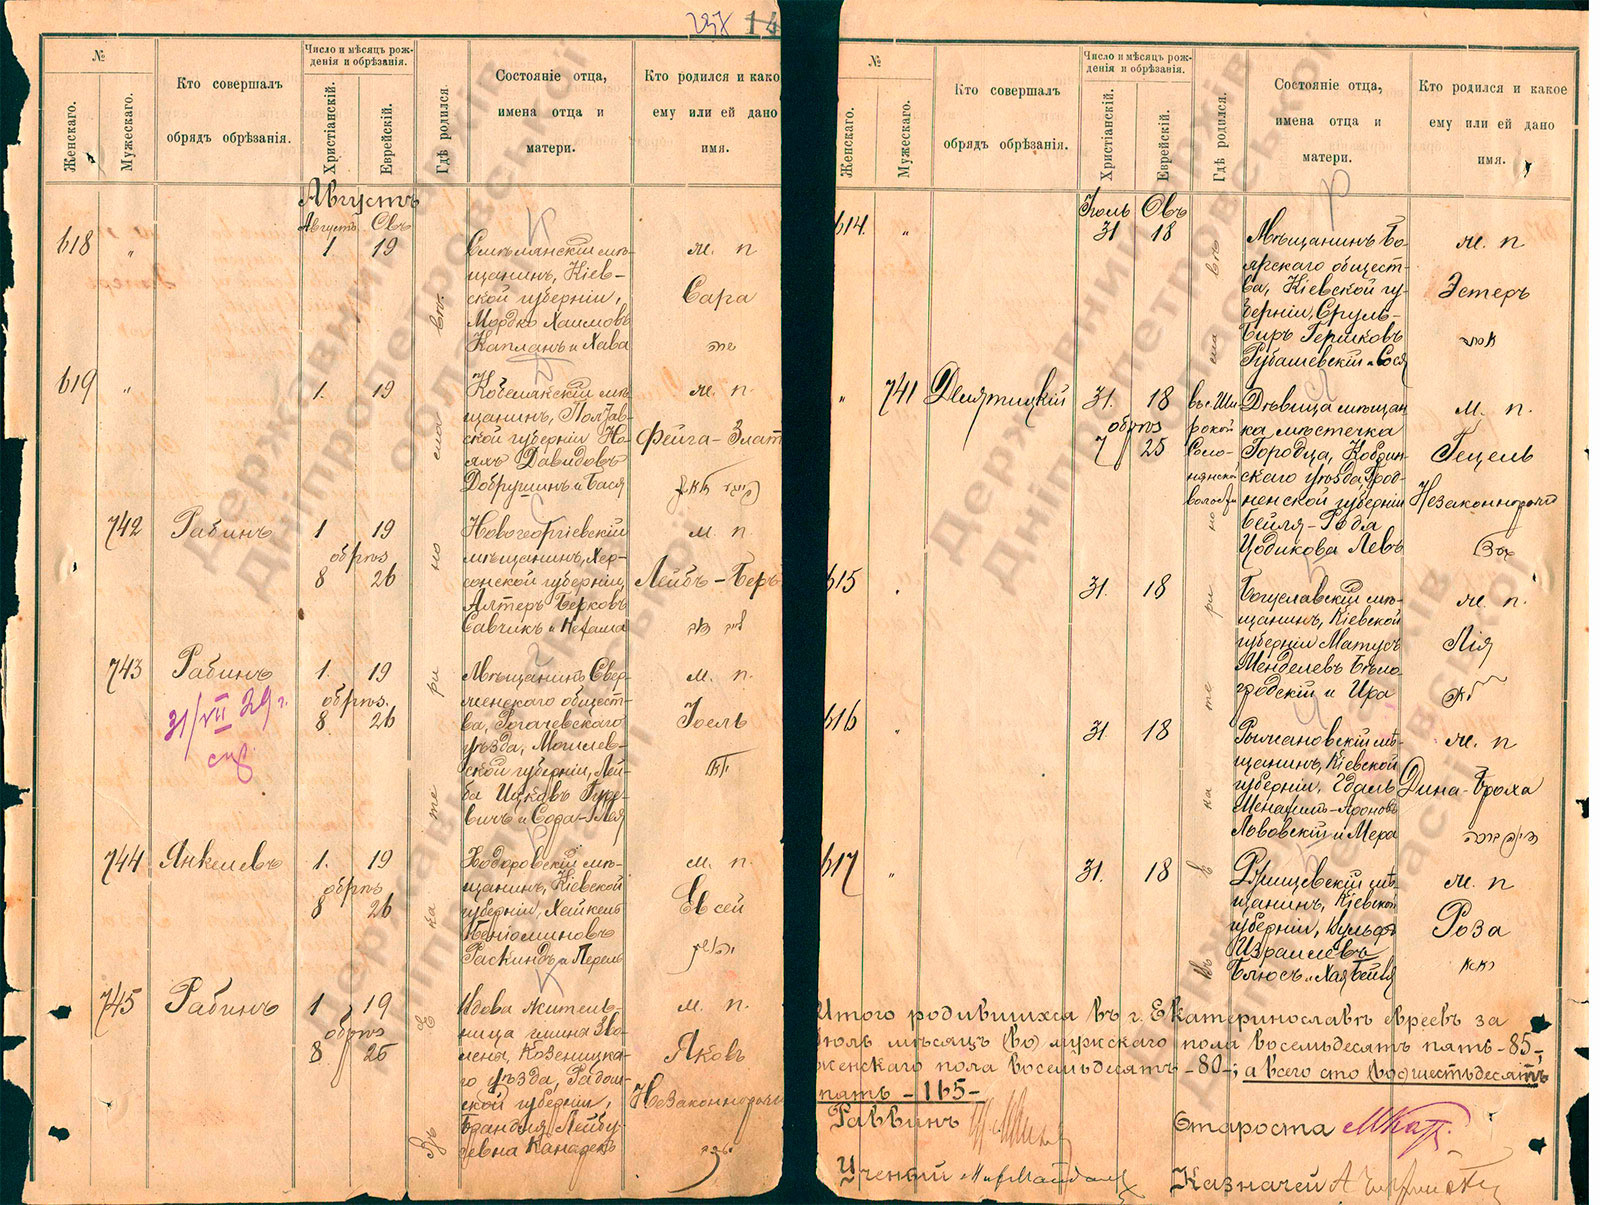 237 14
№
Женскаго.
Мужескаго.
Кто совершалъ
обрядъ обрѣзанія.
Число и мѣсяцъ рож-
денія и обрѣзанія.
Христіанскій.
Еврейскій.
Гдѣ родился.
Состояніе отца,
имена отца и
матери.
Кто родился и какое
ему или ей дано
имя.
Августъ
Августъ Овъ
618 " 1 19
мѣ-
щанинъ, Кіев-
ской губерніи,
Мордко Хаимовъ
Капланъ и Хава
ж. п
Сара
שרה
619 " 1. 19
Кобелякскій мѣ-
щанинъ, Полтав-
ской губерніи Но-
яхъ Давидовъ
Добрушинъ и Бася
ж. п.
Фейга-Злат
742 Рабинъ 1 19
обрѣз
8 26
Новогеоргіевскій
мѣщанинъ, Хер-
сонской губерніи,
Алтеръ Берковъ
Савчикъ и
м. п
Лейбъ-Беръ
743 Рабинъ 1. 19
обрѣз.
8 26
31/VII 29 г.
Мѣщанинъ Свер-
женскаго общест-
ва, Рогачевскаго
уѣзда, Могилев-
ской губерніи, Лей-
ба Ицковъ Гуре-
вичъ и Сора-
м. п.
Іоель
יואל
744 Янкелевъ 1. 19
обрѣз
8 26
Ходоровскій мѣ-
щанинъ, Кіевской
губерніи, Хейкель
Беніоминовъ
Раскинъ и Перель
м. п.
Евсей
745 Рабинъ 1 19
обрѣз
8 26
Вдова житель-
ница гмина Зво-
лены, Козеницка-
го уѣзда, Радом-
ской губерніи,
Лейбу-
севна
м. п.
Яковъ
Незаконнорож
יעקב
Въ Екатеринославѣ
№
Женскаго.
Мужескаго.
Кто совершалъ
обрядъ обрѣзанія.
Число и мѣсяцъ рож-
денія и обрѣзанія.
Христіанскій.
Еврейскій.
Гдѣ родился.
Состояніе отца,
имена отца и
матери.
Кто родился и какое
ему или ей дано
имя.
Іюль Овъ
614. " 31 18
Мѣщанинъ Бо-
ярскаго общест-
ва, Кіевской гу-
берніи, Сруль-
Беръ Гершковъ
Рубашевскій и Сося
ж. п
Эстеръ
אסתר
" 741 31. 18
обрѣз
7 25
въ с. Ши
рокой
Соло-
нянской
волости
Дѣвица мѣщан
ка мѣстечка
Городца, Кобрин
скаго уѣзда, Грод-
ненской губерніи
Бейля-Рода
Цодикова Левъ
м. п.
Гецель
Незаконнорожд
געצל
615 " 31. 18
Богуславскій мѣ-
щанинъ, Кіевской
губерніи Матус
Менделевъ Бѣло
городскій и Ира
ж. п.
Лія
לאה
616 " 31 18
мѣ-
щанинъ, Кіевской
губерніи,
Менахимъ-Ароновъ
Львовскій и Мера
ж. п
Дина-Броха
דינה ברכה
617 " 31. 18
Ржищевскій мѣ
щанинъ, Кіевской
губерніи, Вульфъ
Израилевъ
Блюсъ и Хая Бейля
ж. п
Роза
Въ Екатеринославѣ
Итого родившихся въ г. Екатеринославѣ евреевъ за
Іюль мѣсяцъ (во) мужскаго пола восемьдесятъ пять -85-,
женскаго пола восемьдесятъ -80-; а всего сто (во) шестьдесятъ
пять -165-
Раввинъ
Староста
Ученый
Казначей
Державний архів
Дніпропетровської
області